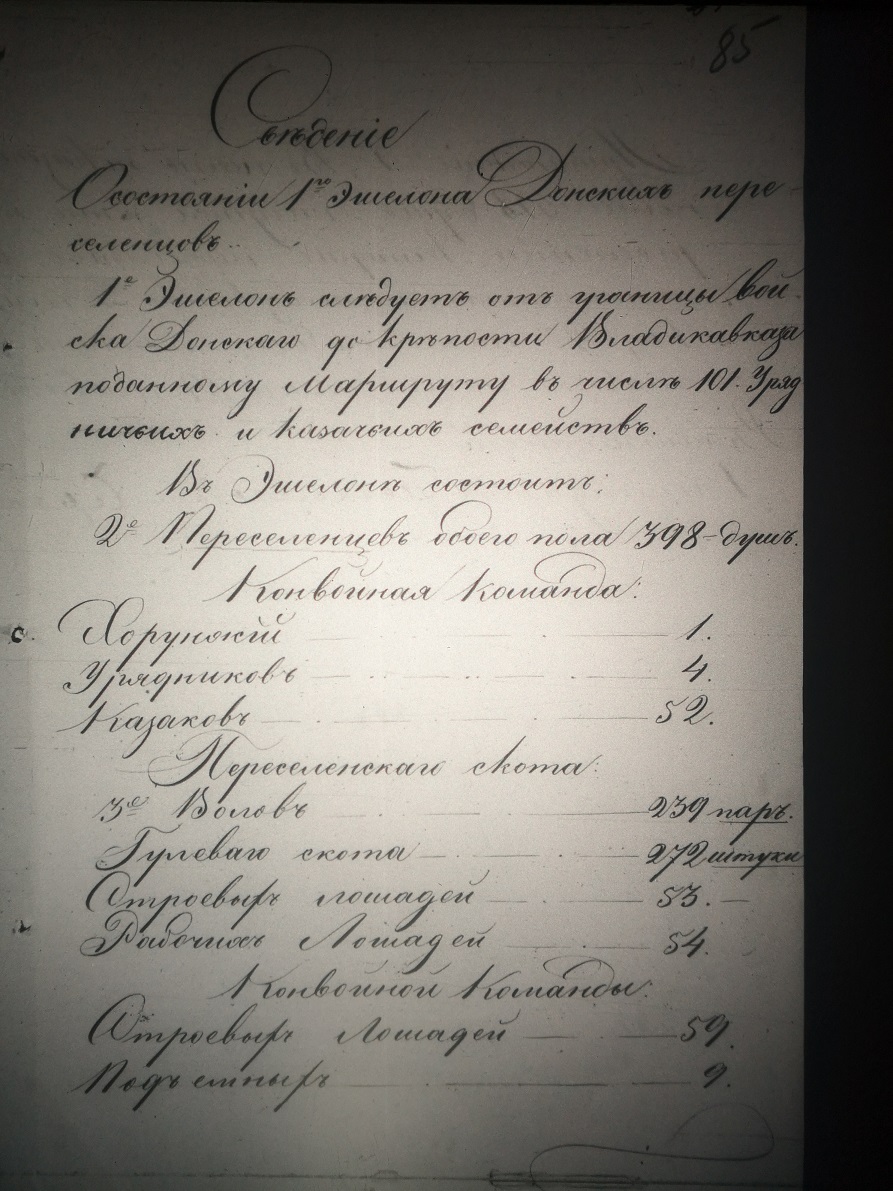 85
Свѣдѣніе
Осостояніи 1го Эшелона Донскихъ пере-
селенцовъ.
1е Эшелонъ слѣдуетъ отъ границы Вой-
ска Донскаго до крѣпости Владикавказа
поданному Маршруту въ числѣ 101. Уряд
ничьихъ и казачьихъ семействъ.
Въ Эшелонѣ состоитъ:
2е Переселенцевъ обоего пола 398 - душъ.
Конвойная Команда:
Хорунжій 1.
Урядниковъ 4.
Казаковъ 52.
Переселенскаго скота:
3е Воловъ 239 паръ.
Гулеваго скота 272 штуки
Строевыхъ лошадей 53. -
Рабочихъ Лошадей 54.
Конвойной Команды:
Строевыхъ Лошадей 59.
Подъемныхъ 9.